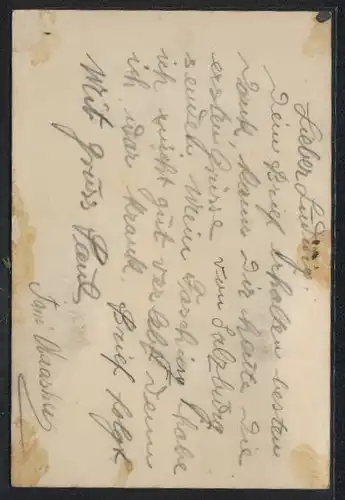 Lieber Ludwig!
Dein Brief erhalten besten
Dank kann Dir heute die
ersten Grüsse von Salzburg
senden. Mein Faschien habe
ich nicht gut verlebt denn
ich war krank. Brief folgt
Mit Gruss Paul
Toni